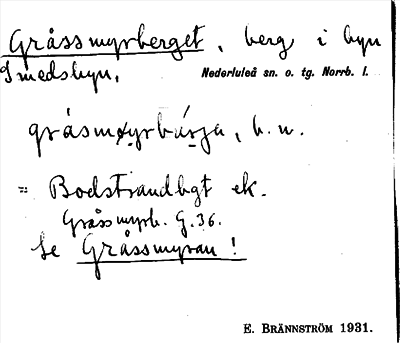 Gråssmyrberget, berg i byn
Smedsbyn,
Nederluleå sn. o. tg. Norrb. l.
gråsmyrbárja, b. n.
= Bodstrandbgt ek.
Gråssmyrb. G.36.
Se Gråssmyran!
E. BRÄNNSTRÖM 1931.